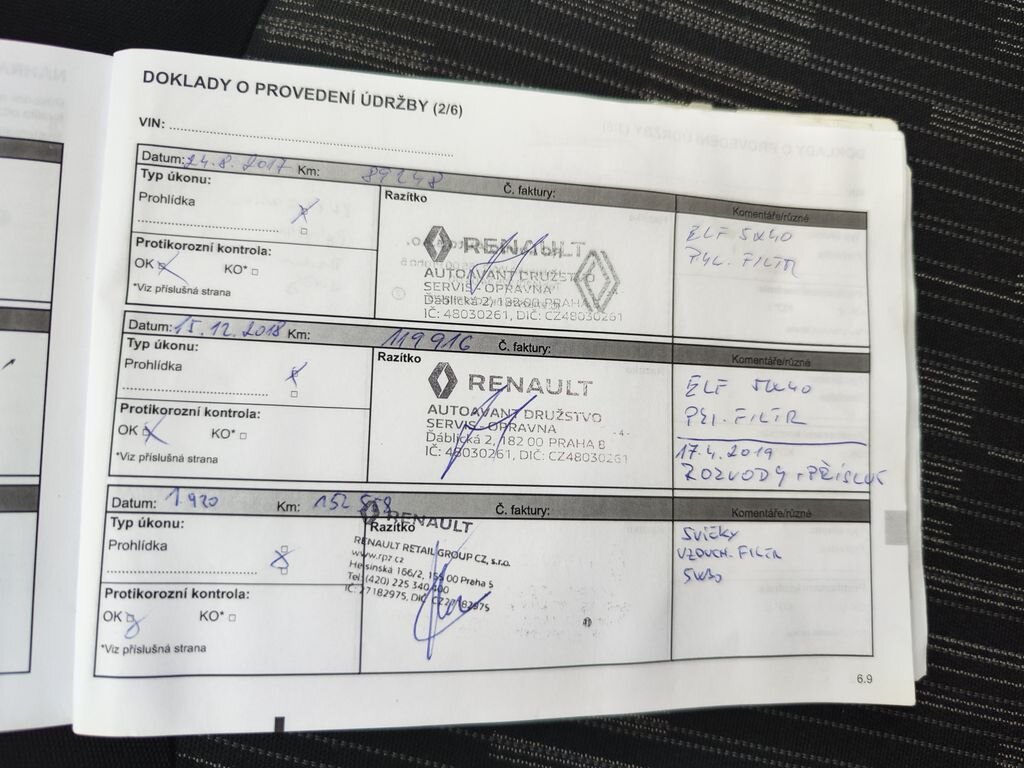 DOKLADY O PROVEDENÍ ÚDRŽBY (2/6)
VIN:
Datum: 24.8.2017 Km: 89248 Č. faktury:
Typ úkonu:
Razítko
Komentáře/různé
Prohlídka
Protikorozní kontrola:
OK KO*
*Viz příslušná strana
RENAULT
AUTOAVANT DRUŽSTVO
SERVIS - OPRAVNA
Ďáblická 2, 182 00 PRAHA
IČ: 48030261, DIČ: CZ48030261
ELF 5W40
PYL. FILTR
Datum: 15.12.2018 Km: 119916 Č. faktury:
Typ úkonu:
Razítko
Komentáře/různé
Prohlídka
Protikorozní kontrola:
OK KO*
*Viz příslušná strana
RENAULT
AUTOAVANT DRUŽSTVO
SERVIS - OPRAVNA -4-
Ďáblická 2, 182 00 PRAHA 8
IČ: 48030261, DIČ: CZ48030261
ELF 5W40
PYL. FILTR
17.4.2019
ROZVODY + PŘÍSLUŠ
Datum: 1.920 Km: 152 558 Č. faktury:
Typ úkonu:
Razítko
Komentáře/různé
Prohlídka
Protikorozní kontrola:
OK KO*
*Viz příslušná strana
RENAULT
RENAULT RETAIL GROUP CZ, s.r.o.
Helsinská 166/2, 155 00 Praha 5
Tel: (420) 225 340 400
IČ: 27182975, DIČ: CZ27182975
SVÍČKY
VZDUCH. FILTR
5W30
6.9